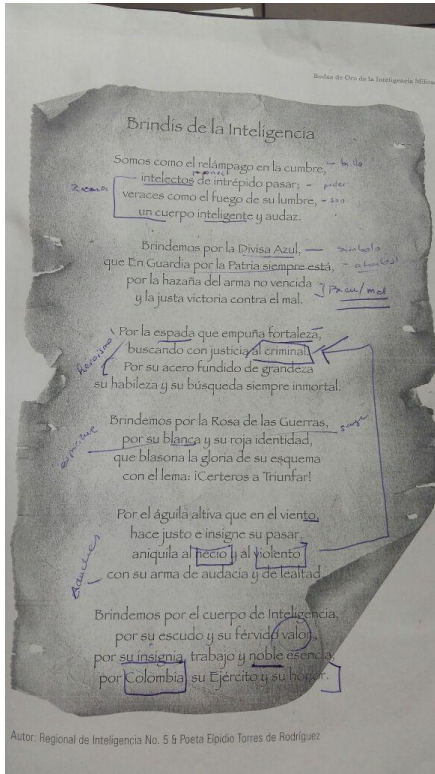 Bodas de Oro de la Inteligencia Milita
Brindis de la Inteligencia
Somos como el relámpago en la cumbre,
intelectos de intrépido pasar;
veraces como el fuego de su lumbre,
un cuerpo inteligente y audaz.
Brindemos por la Divisa Azul, símbolo
que En Guardia por la Patria siempre está,
por la hazaña del arma no vencida
y la justa victoria contra el mal.
Por la espada que empuña fortaleza,
buscando con justicia al criminal.
Por su acero fundido de grandeza
su habileza y su búsqueda siempre inmortal.
Brindemos por la Rosa de las Guerras,
por su blanca y su roja identidad,
que blasona la gloria de su esquema
con el lema: ¡Certeros a Triunfar!
Por el águila altiva que en el viento,
hace justo e insigne su pasar,
aniquila al necio y al violento
con su arma de audacia y de lealtad.
Brindemos por el cuerpo de Inteligencia,
por su escudo y su férvido valor,
por su insignia, trabajo y noble esencia,
por Colombia, su Ejército y su honor.
Autor: Regional de Inteligencia No. 5 & Poeta Elpidio Torres de Rodríguez